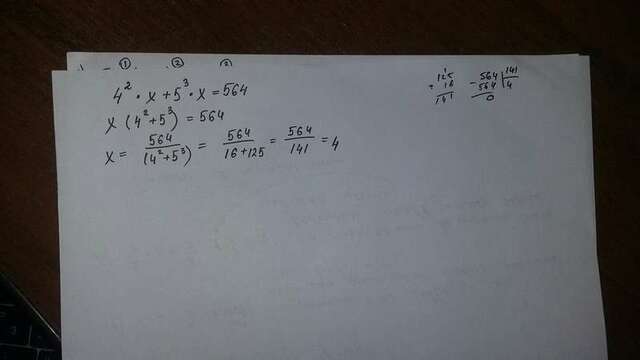 ① ② ③
4² · x + 5³ · x = 564
x (4² + 5³) = 564
x = 564/(4² + 5³) = 564/(16 + 125) = 564/141 = 4
125
+ 16
141
564 | 141
- 564 | 4
0